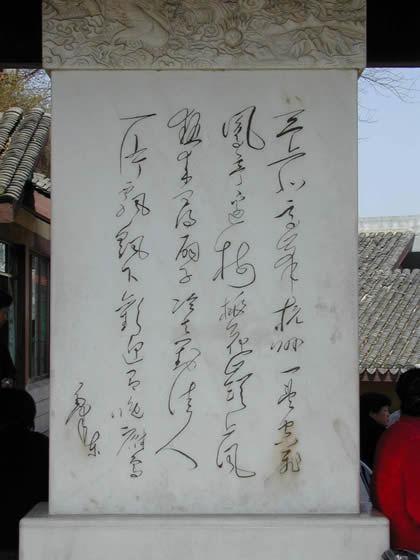 三上北高峯杭州一望空飛
鳳亭邊樹桃花嶺上風
熱來尋扇子冷去對佳人
一片飄飄下歡迎有晚鷹
毛澤東